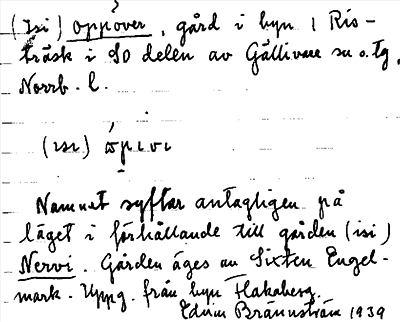 (Isi) oppover, gård i byn i Ris-
träsk i SO delen av Gällivare sn o. tg,
Norrb. l.
(isi)
Namnet syftar antagligen på
läget i förhållande till gården (isi)
Nervi. Gården äges av Sixten Engel-
mark. Uppg. från byn Flakaberg.
Edvin Brännström 1939